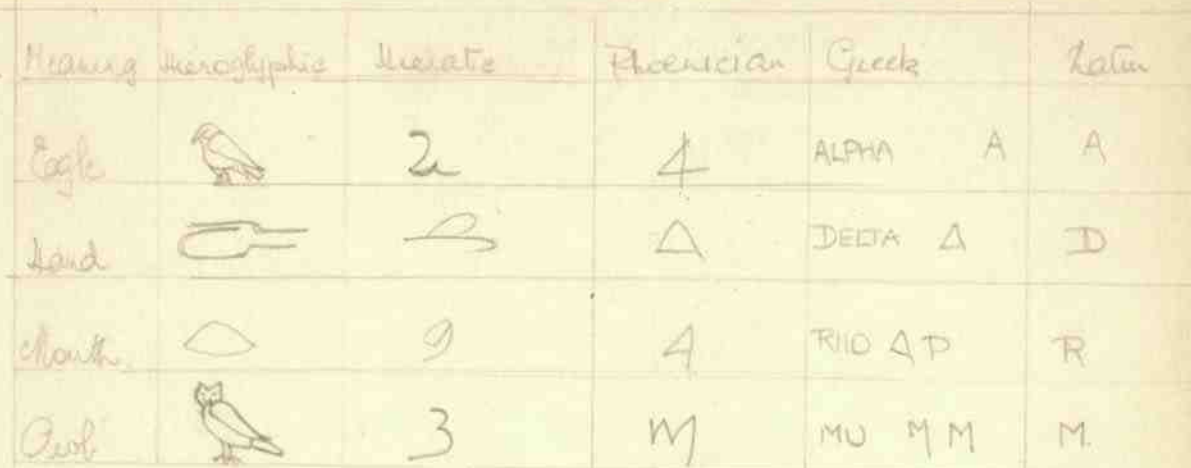 Meaning Hieroglyphic Hieratic Phoenician Greek Latin
Eagle 2 4 ALPHA A A
Hand Δ DELTA Δ D
Mouth 9 4 RHO Δ P R
Owl 3 M MU M M M.